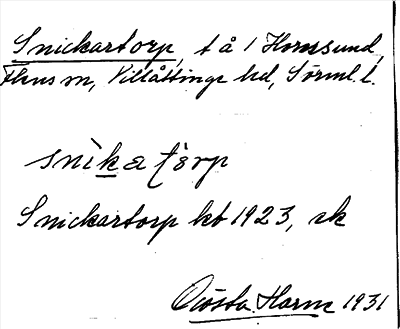 Snickartorp, t å 1 Hornsund,
Flens sn, Villåttinge hd, Sörml. l.
snìkatòrp
Snickartorp kb 1923, ek
Gösta Harm 1931